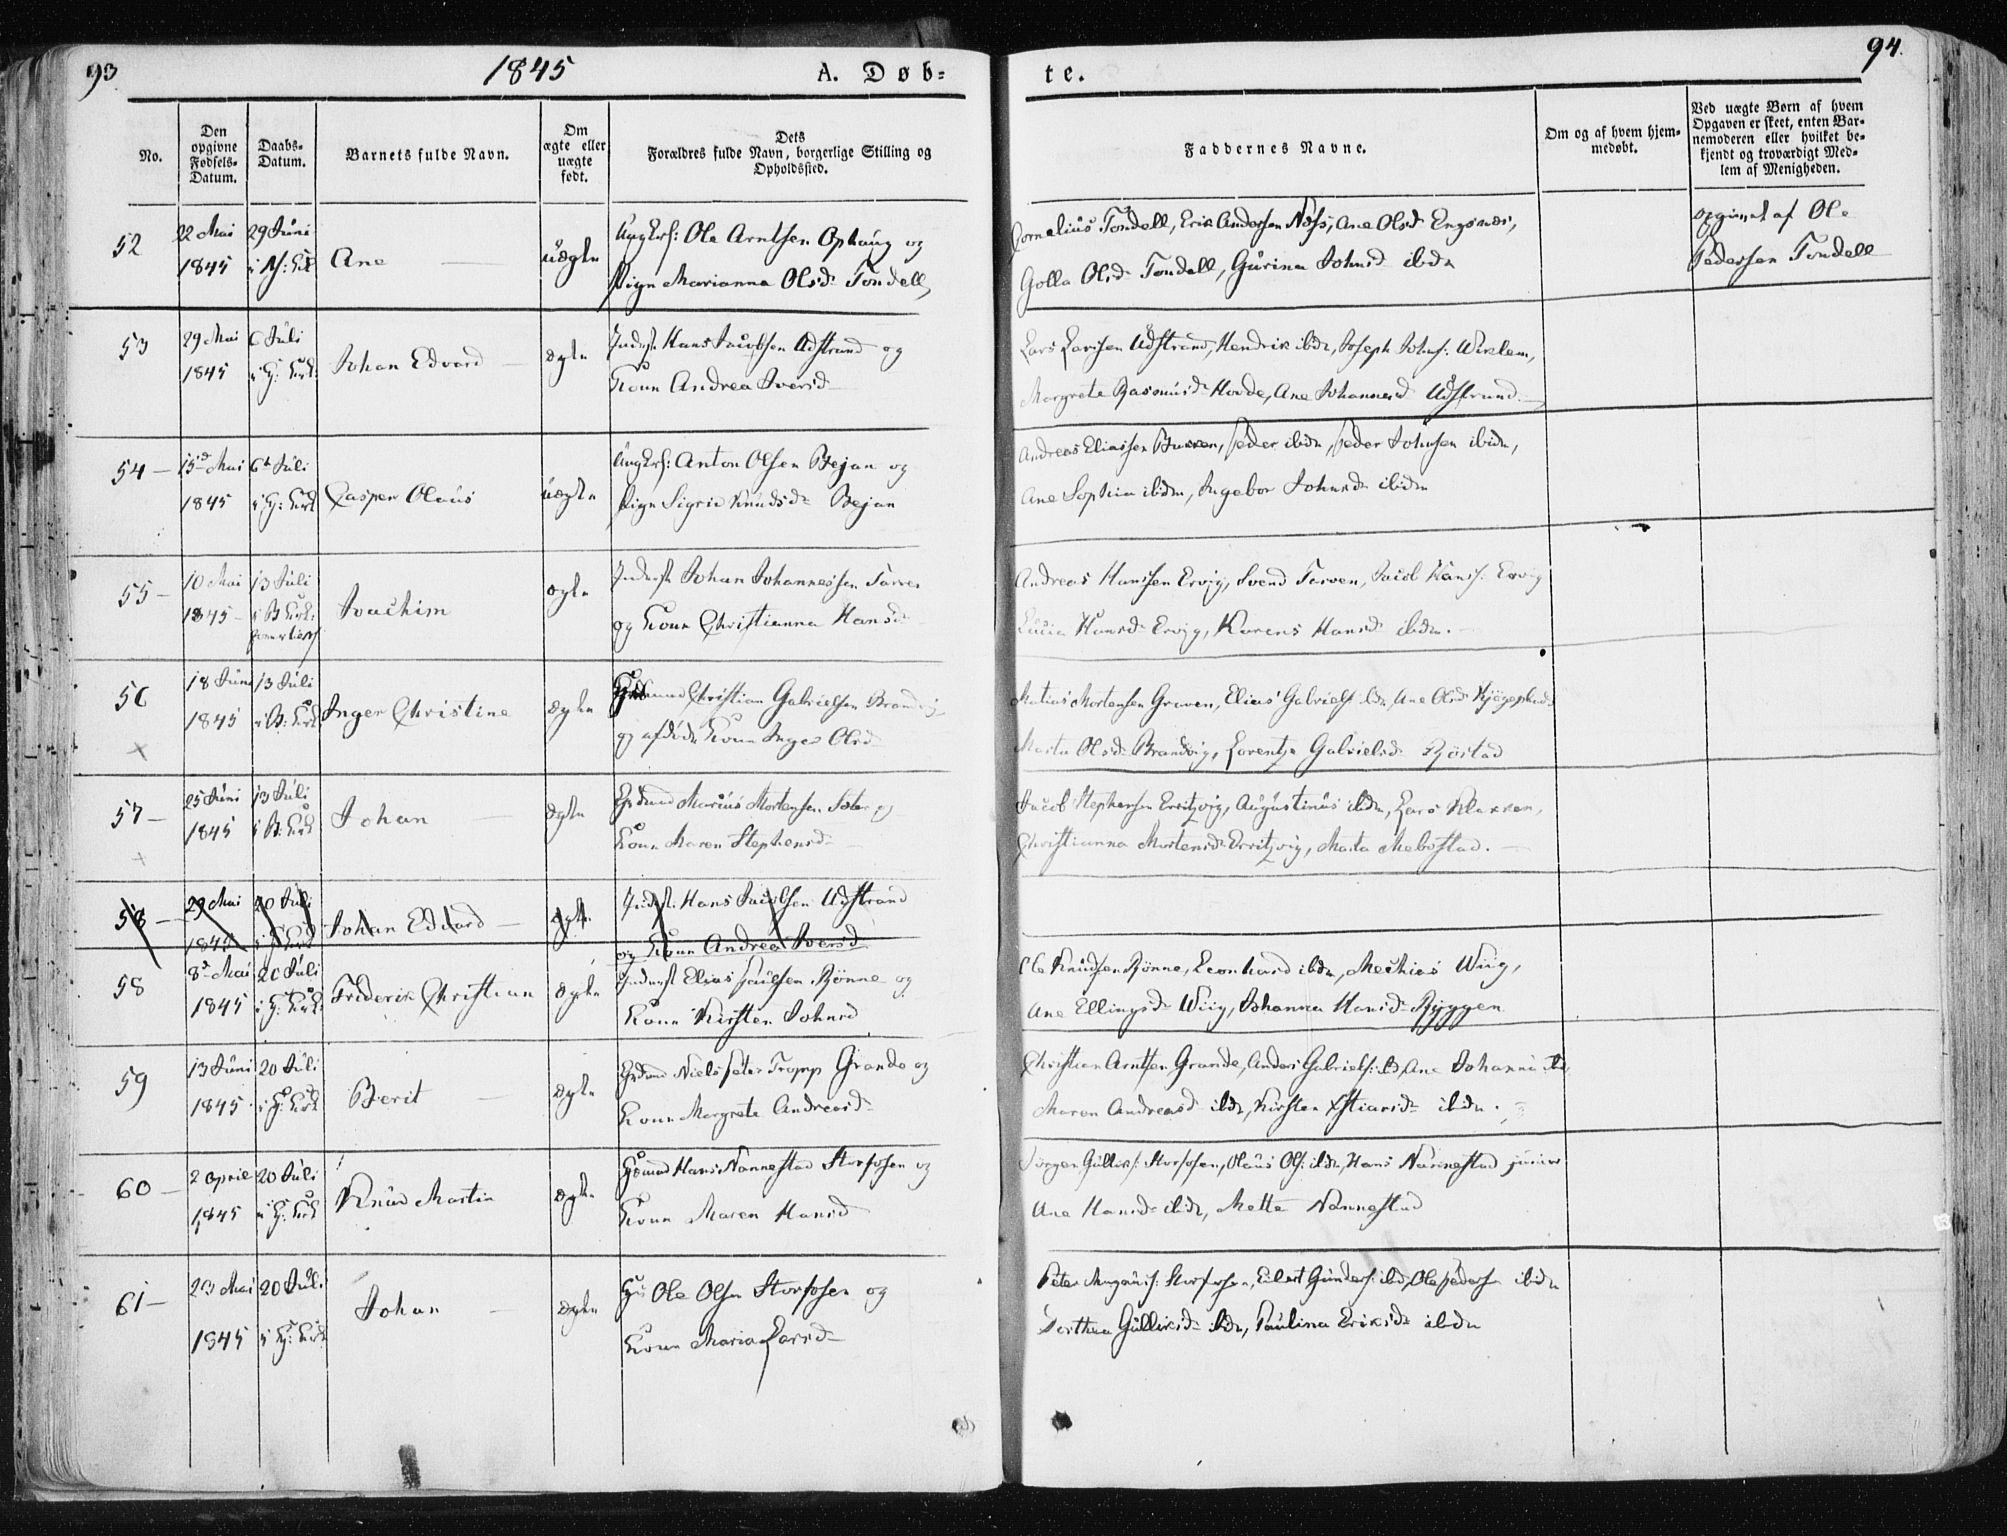 93.
1845
A. Døb-
te.
94.
No.
Den
opgivne
Fødsels-
Datum.
Daabs-
Datum.
Barnets fulde Navn.
Om
ægte eller
uægte
født.
Dets
Forældres fulde Navn, borgerlige Stilling og
Opholdssted.
Faddernes Navne.
Om og af hvem hjem-
medøbt.
Ved uægte Børn af hvem
Opgaven er skeet, enten Bar-
nemoderen eller hvilket be-
kjendt og troværdigt Med-
lem af Menigheden.
52
22 Mai
1845
29 Juni
Ane
uægte
Ungkrl: Ole Arntsen Ophaug og
Pige Marianna Olsd: Tondell
Cornelius Tondell, Erik Andersen Næss, Ane Olsd Engsnæs,
Golla Olsd Tondell, Gurina Johnsd ibidm
opgivet af Ole
Pedersen Tondell
53
29 Mai
1845
6 Juli
i Ø: Kirk:
Johan Edvard
ægte
Inderst Hans Jacobsen Udstrand og
Kone Andrea Iversd
Lars Larssen Udstrand, Hendrik ibidm, Joseph Johns: Wiklem,
Margrete Rasmusd Hovde, Ane Johannesd Udstrand.
54 -
15d Mai
1845
6t Juli
i Ø: Kirk
Casper Olaus
uægte
Ungkrl: Anton Olsen Bejan og
Pige Sigrid Knudsd: Bejan
Andreas Eliassen Bunen, Peder ibidm, Peder Johnsen ibidm,
Ane Sophia ibidm, Ingebor Johnsd ibidm
55 -
10 Mai
1845 -
13 Juli
i B Kirk:
Joachim
ægte
Inderst Johan Johannessen Tarven
og Kone Christianna Hansd:
Andreas Hanssen Ervig, Svend Tarven, Jacob Hans: Ervig
Lucia Hansd Ervig, Karens Hansd ibidm.
56
18 Juni
1845
13 Juli
i B: Kirk
Inger Christine
ægte
Christian Gabrielsen Brandvig
og afdøde Kone Inger Olsd
Matias Mortensen Graven, Elias Gabriels ibidm Ane Olsd
Marta Olsd Brandvig, Lorentze Gabrielsd Røstad
57 -
25 Juni
1845
13 Juli
i B: Kirk
Johan
ægte
Grdmd Marius Mortensen Sæter og
Kone Maren Stephensd
Jacob Stephensen Ervitzvig, Augustinus ibidm, Lars Klakken,
Christianna Mortensd Ervitzvig, Marta Mebostad.
58 -
29 Mai
1845
20 Juli
i Ø Kirk
Johan Edvard -
ægte
Inderst: Hans Jacobsen Udstrand
og Kone Andrea Iversd
58
8d Mai
1845
20 Juli
i Ø: Kirk:
Friderik Christian
ægte
Inderst Elias Paulsen Rønne og
Kone Kirsten Johnsd
Ole Knudsen Rønne, Leonhard ibidm, Mechias Wiig,
Ane Ellingsd Wiig, Johanna Hansd Ryggen
59
13 Juni
1845
20 Juli
i Ø: Kirk
Berit
ægte
Grdmd Niels Peter Tropp Grande og
Kone Margrete Andreasd
Christian Arntsen Grande, Anders Gabriels: ibd, Ane Johanna ibd,
Maren Andreasd ibidm, Kirsten Xstiansd ibidm.
60 -
2 April
1845
20 Juli
i Ø: Kirk
Knud Martin
ægte
Hans Nannestad Storfosen og
Kone Maren Hansd
Jørgen Gulliks: Storfosen, Olaus Ols: ibidm, Hans Nannestad junior
Ane Hansd ibidm, Mette Nannestad
61 -
23 Mai
1845
20 Juli
i Ø: Kirk
Johan
ægte
Ole Olsen Storfosen og
Kone Maria Larsd
Peter Storfosen, Eilert Gunders: ibd, Ole Pedersen ibidm
Dorthea Gulliksd ibidm, Paulina Eriksd ibidm